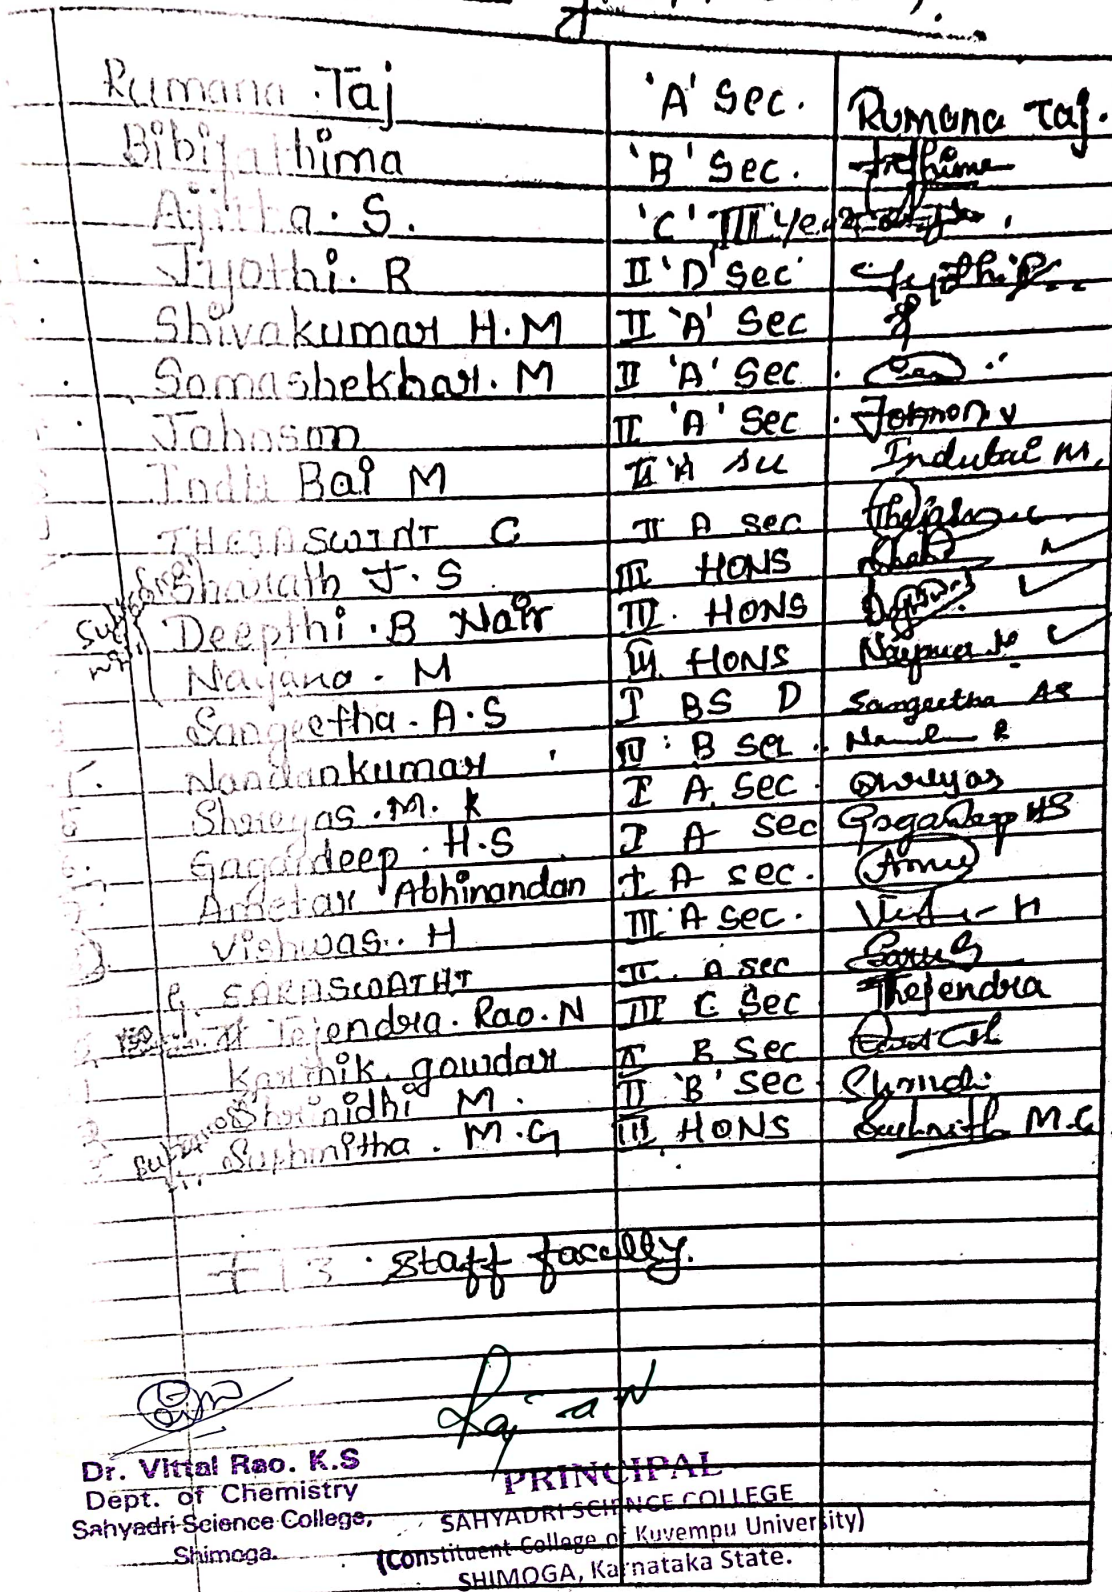 Rumana Taj 'A' Sec. Rumana Taj.
Bibifathima 'B' Sec. Fathima
Ajitha. S. 'C' III Year
Jyothi. R II 'D' Sec Jyothi R
Shivakumar H.M II 'A' Sec
Somashekhar. M II 'A' Sec
Johnson II 'A' Sec Johnson v
Indu Bai M II 'A Indubai M,
THEJASWINI C II A sec
Sharath J.S III HONS
Deepthi. B Nair III. HONS
Nayana. M III HONS Nayana M
Sangeetha. A.S I BS D Sangeetha AS
Nandankumar B Sec
Shreyas. M. K I A Sec Shreyas
Gagandeep. H.S I A Sec Gagandeep HS
Abhinandan I A sec.
Vishwas. H III A sec.
SARASWATHI II. A sec
Tejendra. Rao. N III C Sec Thejendra
Karthik. gowdar II B Sec
Shrinidhi M. II 'B' Sec
Sushmitha. M.G III HONS M.G
+ 13 Staff faculty.
Dr. Vittal Rao. K.S
Dept. of Chemistry
Sahyadri Science College,
Shimoga.
PRINCIPAL
SAHYADRI SCIENCE COLLEGE
(Constituent College of Kuvempu University)
SHIMOGA, Karnataka State.